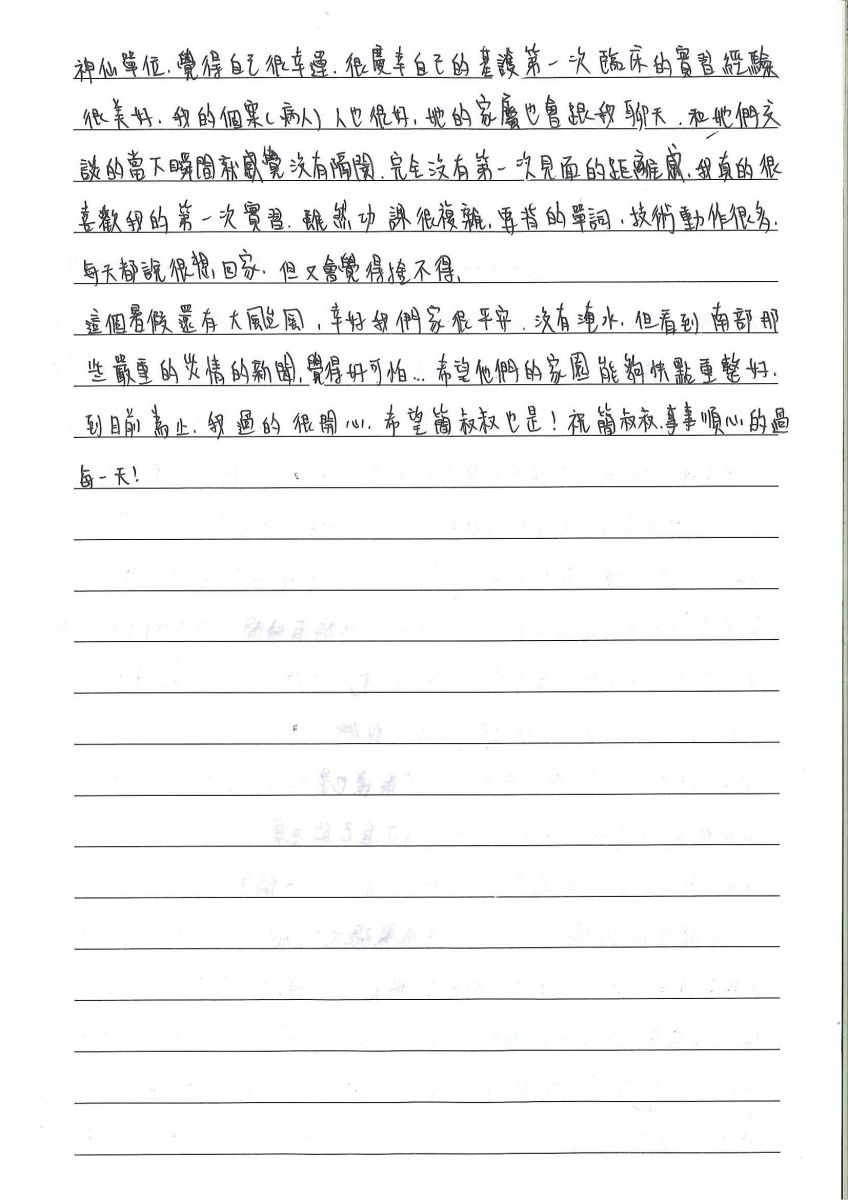 神仙單位,覺得自己很幸運,很慶幸自己的基護第一次臨床的實習經驗
很美好,我的個案(病人)人也很好,她的家屬也會跟我聊天,和她們交
談的當下瞬間就感覺沒有隔閡,完全沒有第一次見面的距離感,我真的很
喜歡我的第一次實習,雖然功課很複雜,要背的單詞,技術動作很多,
每天都說很想回家,但又會覺得捨不得,
這個暑假還有大颱風,幸好我們家很平安,沒有淹水,但看到南部那
些嚴重的災情的新聞,覺得好可怕...希望他們的家園能夠快點重整好,
到目前為止,我過的很開心,希望簡叔叔也是!祝簡叔叔,事事順心的過
每一天!